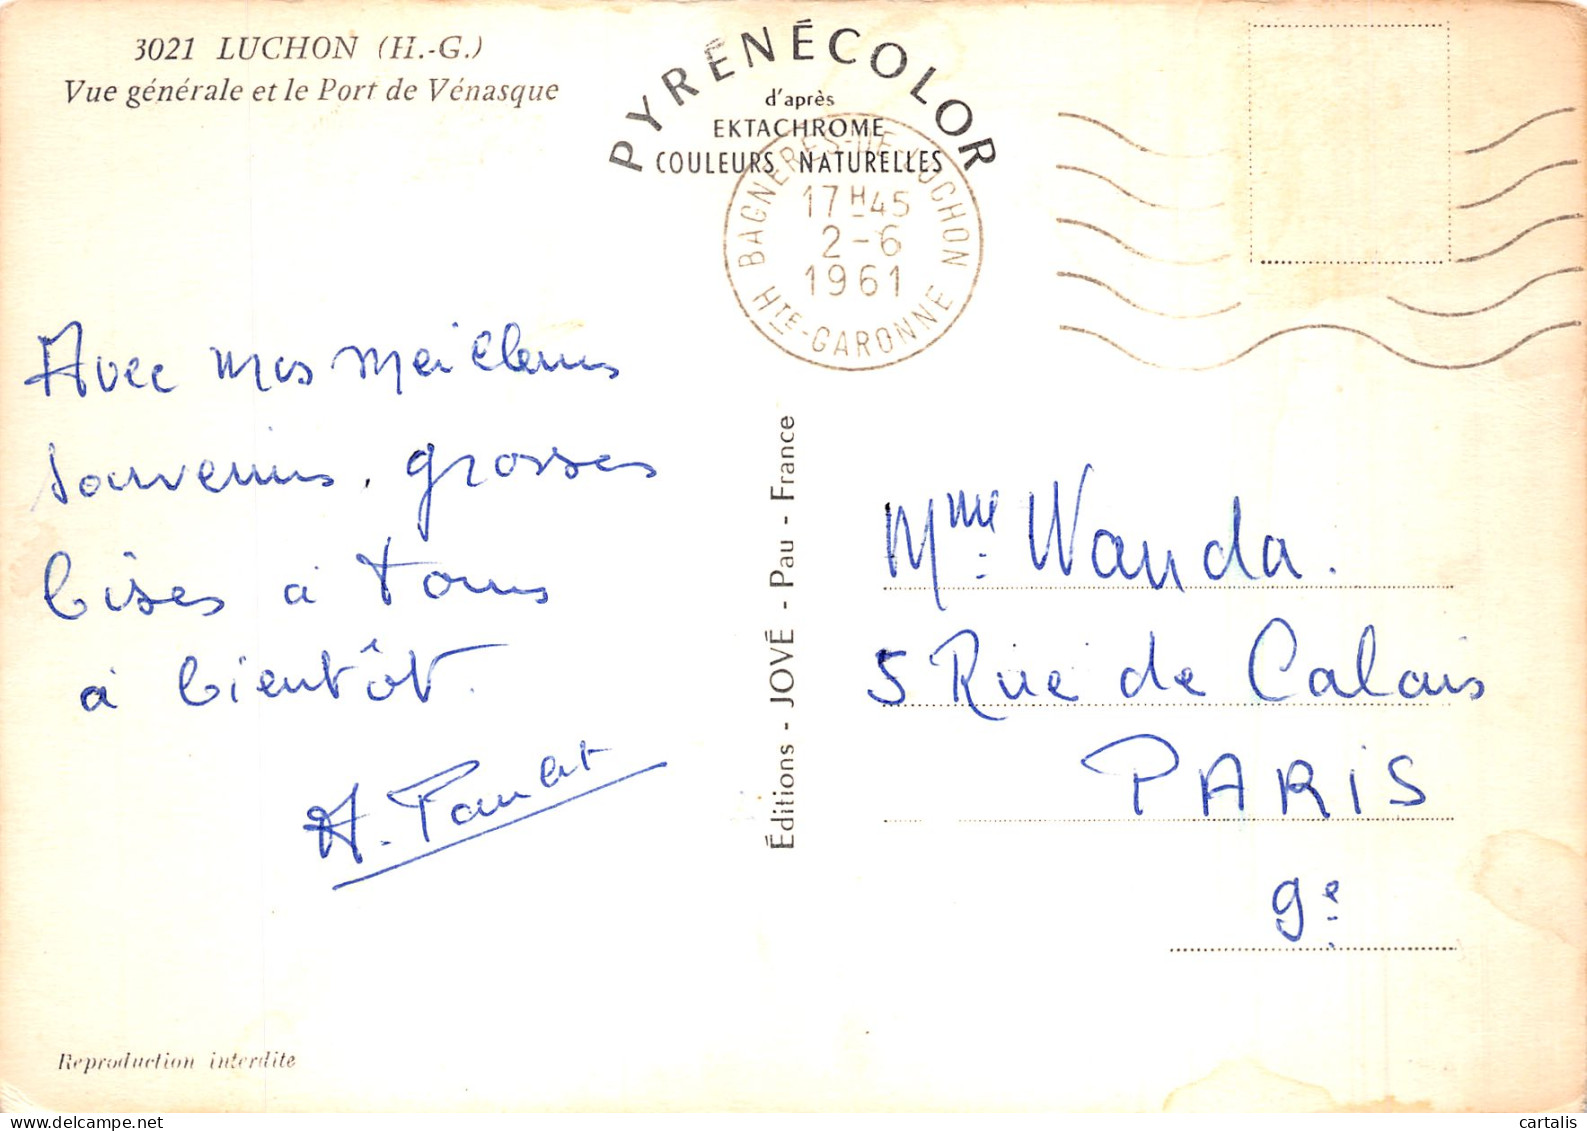 3021 LUCHON (H.-G.)
Vue générale et le Port de Vénasque
PYRÉNÉCOLOR
d'après
EKTACHROME
COULEURS NATURELLES
BAGNERES-DE-LUCHON
17H45
2-6
1961
HTE-GARONNE
Avec mes meilleurs
souvenirs. grosses
bises à tous
à bientôt.
Éditions - JOVÉ - Pau - France
Mme Wanda.
5 Rue de Calais
PARIS
9e
Reproduction interdite
cartalis